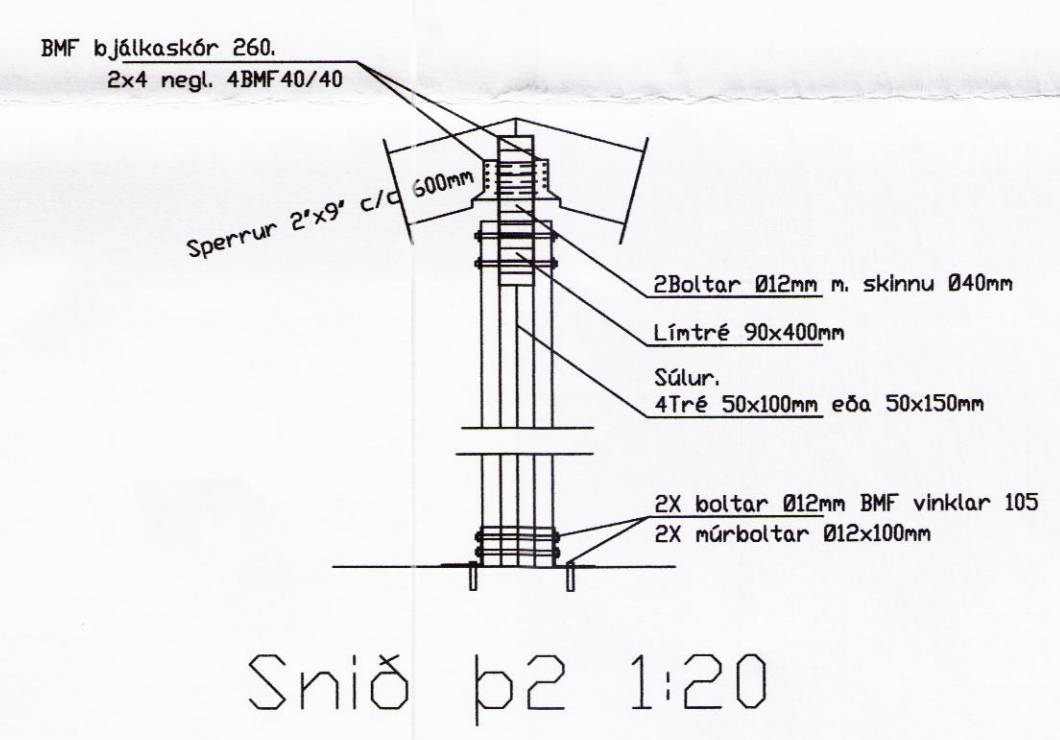 BMF bjálkaskór 260.
2x4 negl. 4BMF40/40
Sperrur 2"x9" c/c 600mm
2Boltar Ø12mm m. skinnu Ø40mm
Límtré 90x400mm
Súlur.
4Tré 50x100mm eða 50x150mm
2X boltar Ø12mm BMF vinklar 105
2X múrboltar Ø12x100mm
Snið þ2 1:20